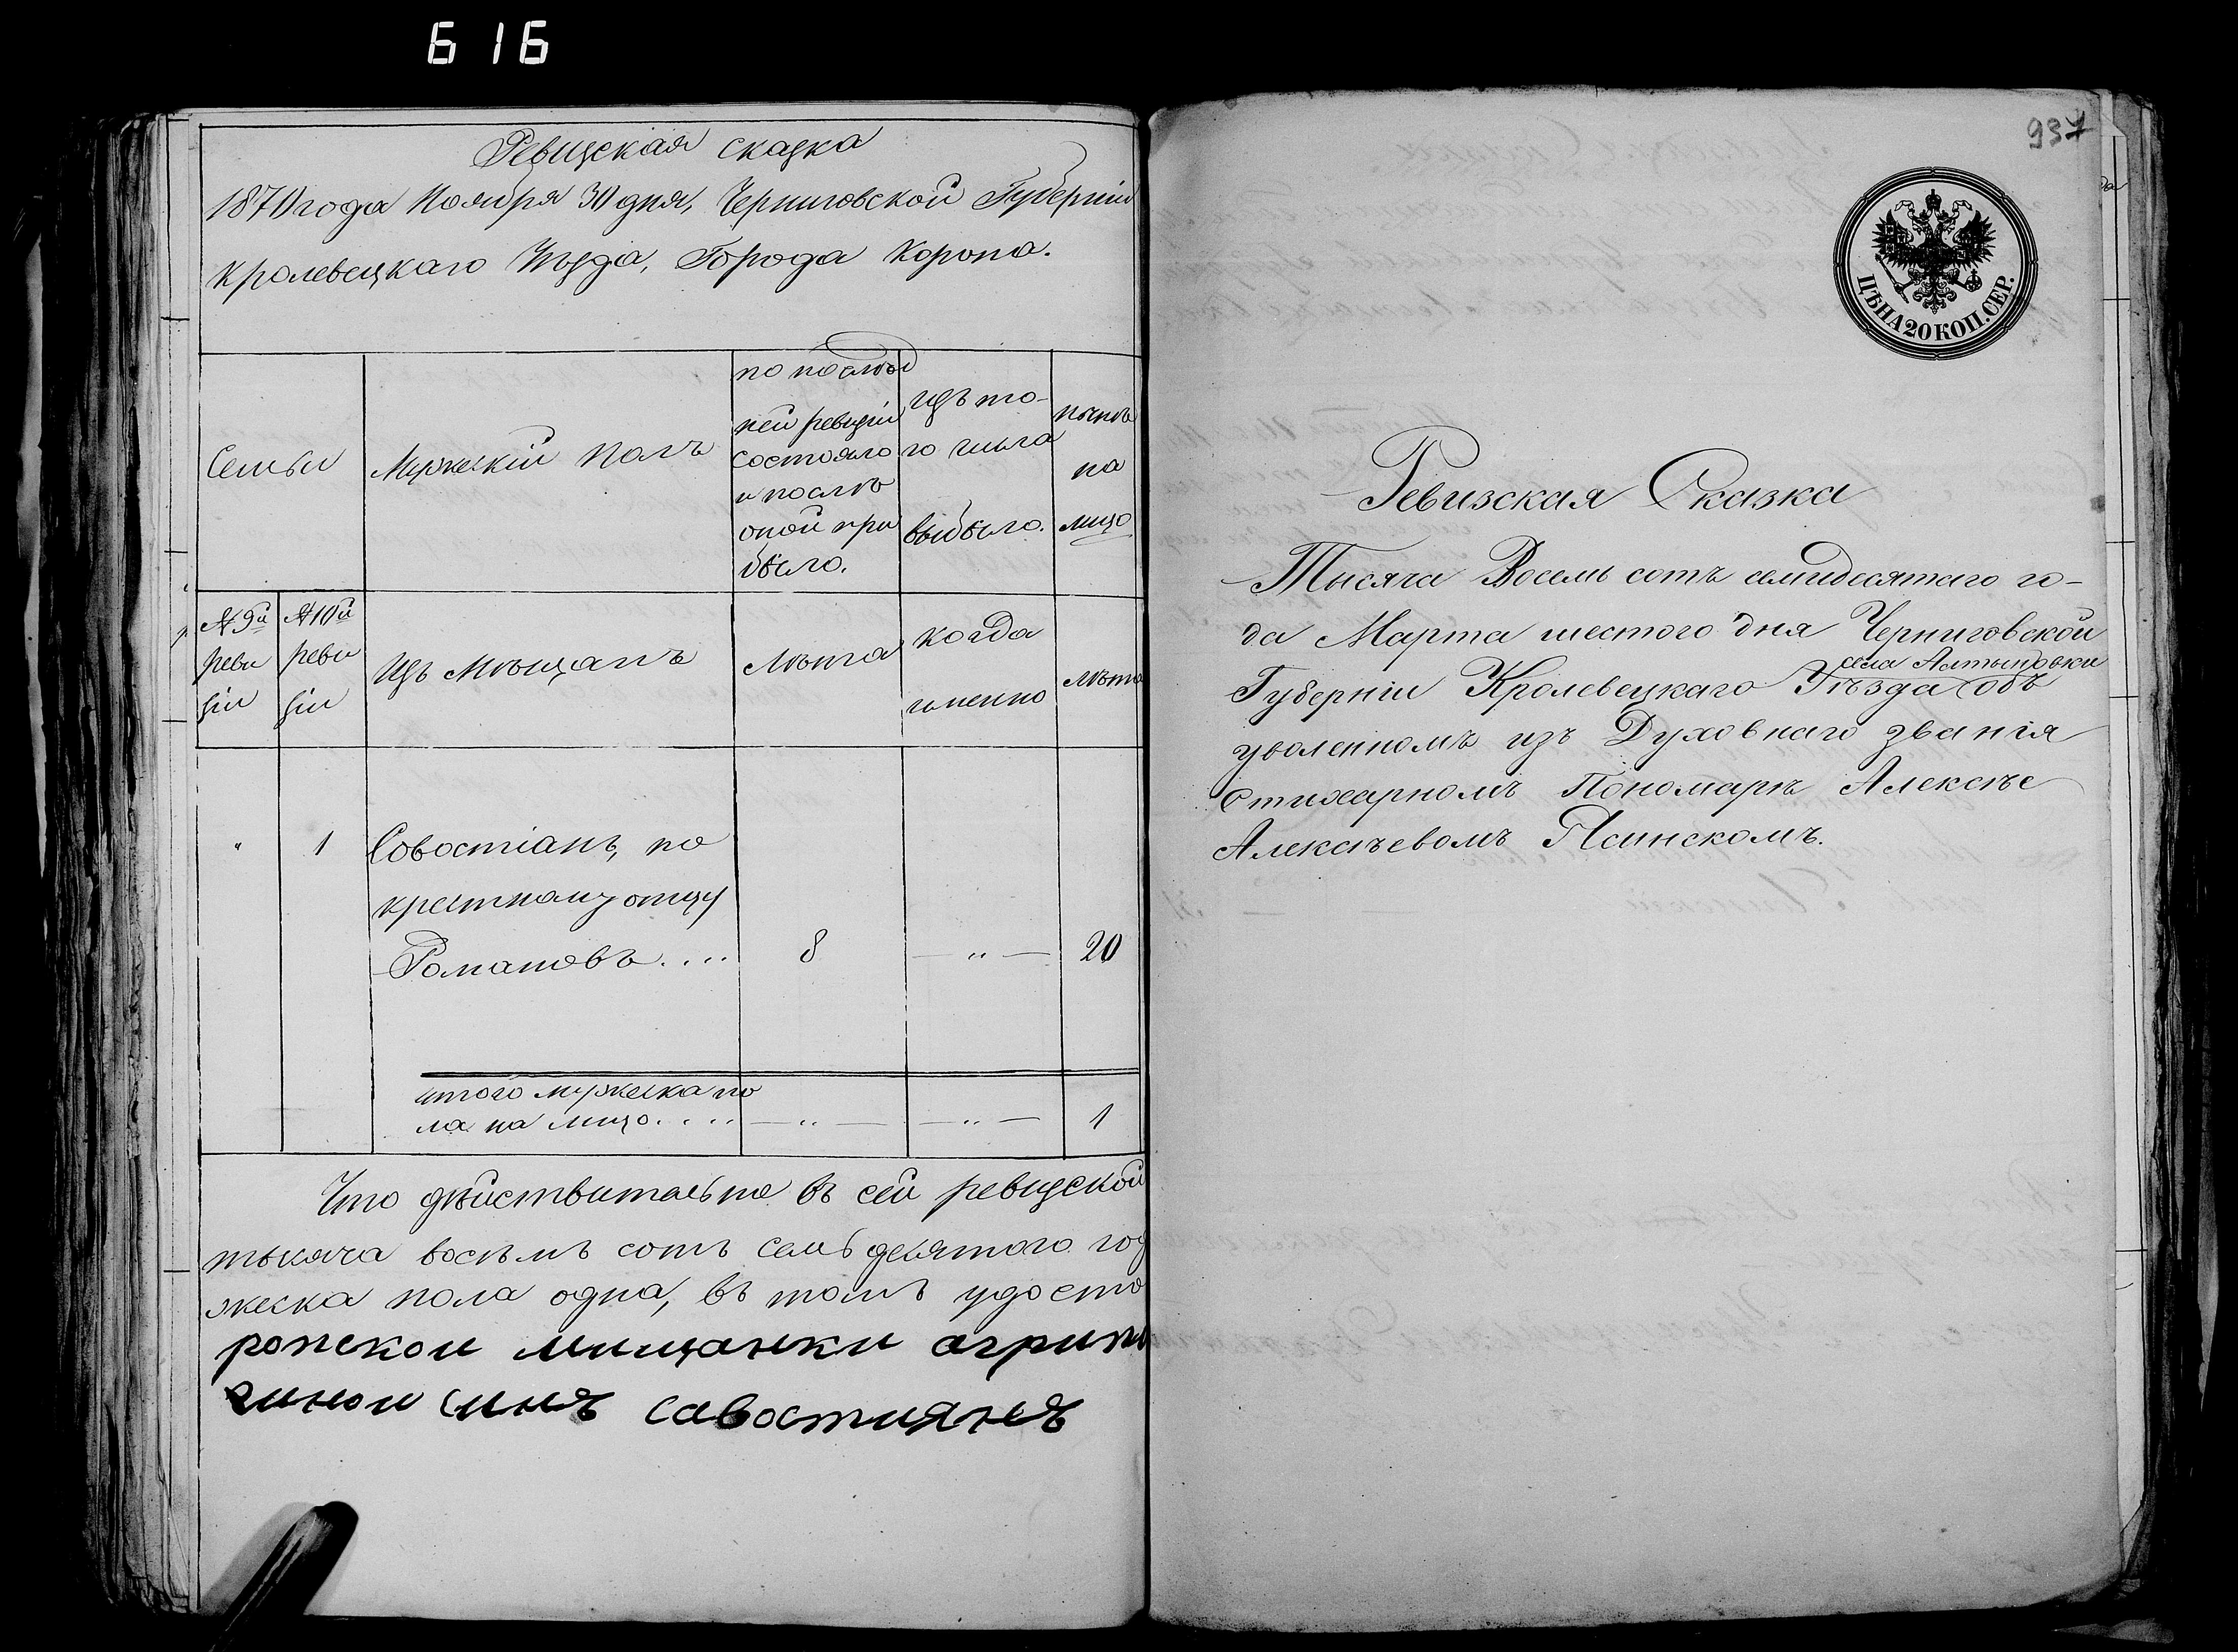 616
Ревизская сказка
1870 года Ноября 30 дня, Черниговской Губерніи
Кролевецкаго Уѣзда, Города Коропа.
Семьи
Мужескій полъ
по послѣд
ней ревизіи
состояло
и послѣ
оной при
было.
изъ то-
го числа
выбыло.
нынѣ
на
лицо
№ 9й
реви
зіи
№ 10й
реви
зіи
Изъ мѣщанъ
Лѣта
когда
именно
Лѣта
" 1 Совостіанъ, по
крестному отцу
Романовъ.... 8 — " — 20
итого мужеска по
ла на лицо..... — " — — " — 1
Что дѣйствительно въ сей ревизской
тысяча восѣмъ сотъ семьдесятого год
жеска пола одна, въ томъ удосто
ропскои мищанки агрипи
синъ савостиянъ
937
ЦѢНА 20 КОП. СЕР.
Ревизская Сказка
Тысяча Восемь сотъ семидесятаго го-
да Марта шестого дня Черниговской
села Алтыновки
Губерніи Кролевецкаго Уѣзда объ
уволенномъ изъ Духовнаго званія
Стихарномъ Пономарѣ Алексѣе
Алексѣевомъ Ясинскомъ.